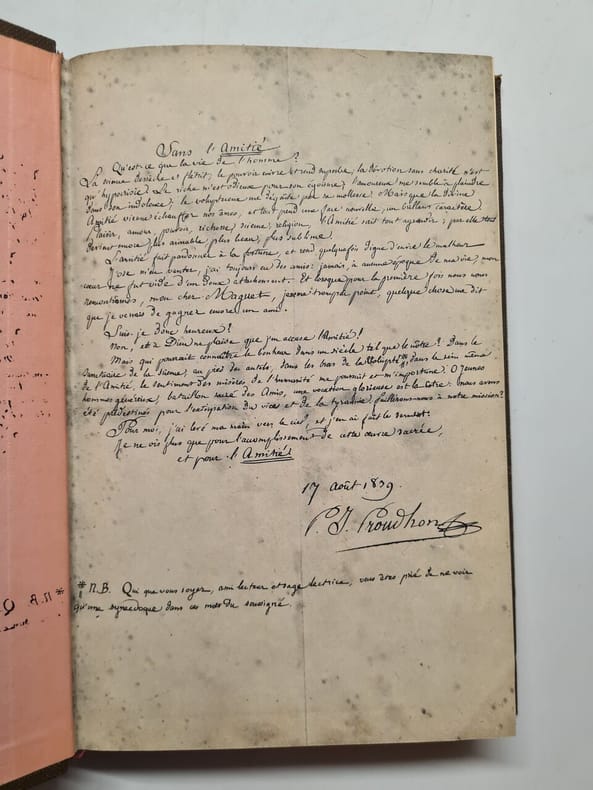 Sans l'Amitié
Qu'est-ce que la vie de l'homme ?
La science dessèche et flétrit, le pouvoir enivre et rend superbe, la dévotion sans charité n'est
qu'hypocrisie. Le riche m'est odieux pour son égoïsme ; l'amoureux me semble à plaindre
dans son indolence, le voluptueux me dégoûte par sa mollesse. Mais que la divine
Amitié vienne échauffer nos âmes, et tout prend une face nouvelle, un brillant caractère.
Plaisir, amour, pouvoir, richesse, science, religion, l'Amitié sait tout agrandir ; par elle tout
devient encore plus aimable, plus beau, plus sublime.
L'amitié fait pardonner à la fortune, et rend quelquefois digne d'envie le malheur
J'ose m'en vanter, j'ai toujours eu des amis : jamais, à aucune époque de ma vie, mon
cœur ne fut vide d'un doux attachement. Et lorsque pour la première fois nous nous
rencontrâmes, mon cher Maguet, je ne me trompe point, quelque chose me dit
que je venais de gagner encore un ami.
Suis-je donc heureux ?
Non, et à Dieu ne plaise que j'en accuse l'Amitié !
Mais qui pourrait connaître le bonheur dans un siècle tel que le nôtre ? Dans le
sanctuaire de la science, au pied des autels, dans les bras de la Volupté*, dans le sein même
de l'Amitié, le sentiment des misères de l'humanité me poursuit et m'importune. O jeunes
hommes généreux, bataillon sacré des Amis, une vocation glorieuse est la vôtre : nous avons
été prédestinés pour l'extirpation du vice et de la tyrannie. faillirons-nous à notre mission ?
Pour moi, j'ai levé ma main vers le ciel, et j'en ai fait le serment.
Je ne vis plus que pour l'accomplissement de cette œuvre sacrée,
et pour l'Amitié.
17 août 1839.
P. J. Proudhon
* N.B. Qui que vous soyez, ami lecteur et sage lectrice, vous êtes prié de ne voir
qu'une synecdoque dans ces mots du soussigné.